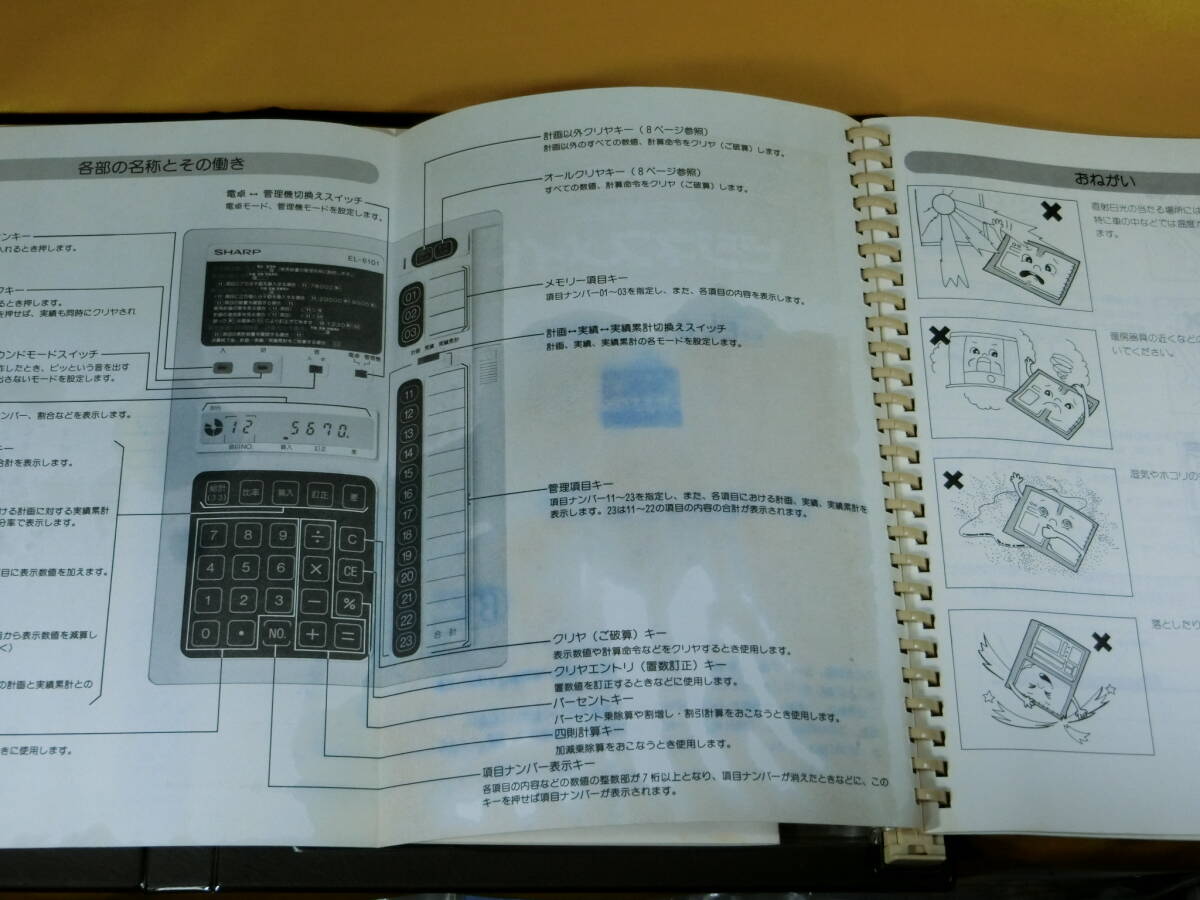 各部の名称とその働き
電卓 ↔ 管理機切換えスイッチ
電卓モード、管理機モードを設定します。
ンキー
入れるとき押します。
フキー
るとき押します。
を押せば、実績も同時にクリヤされ
ウンドモードスイッチ
作したとき、ピッという音を出す
出さないモードを設定します。
ンバー、割合などを表示します。
キー
合計を表示します。
ける計画に対する実績累計
分率で表示します。
項目に表示数値を加えます。
から表示数値を減算し
く）
の計画と実績累計との
きに使用します。
SHARP
EL-6101
12 5670.
項目NO. 輸入 訂正 差
総計 比率 輸入 訂正 差
(23)
7 8 9 ÷ C
4 5 6 × CE
1 2 3 − %
0 • NO. + =
01
02
03
計画 実績 実績累計
11
12
13
14
15
16
17
18
19
20
21
22
23 合計
計画以外クリヤキー（８ページ参照）
計画以外のすべての数値、計算命令をクリヤ（ご破算）します。
オールクリヤキー（８ページ参照）
すべての数値、計算命令をクリヤ（ご破算）します。
メモリー項目キー
項目ナンバー01〜03を指定し、また、各項目の内容を表示します。
計画↔実績↔実績累計切換えスイッチ
計画、実績、実績累計の各モードを設定します。
管理項目キー
項目ナンバー11〜23を指定し、また、各項目における計画、実績、実績累計を
表示します。23は11〜22の項目の内容の合計が表示されます。
クリヤ（ご破算）キー
表示数値や計算命令などをクリヤするとき使用します。
クリヤエントリ（置数訂正）キー
置数値を訂正するときなどに使用します。
パーセントキー
パーセント乗除算や割増し・割引計算をおこなうとき使用します。
四則計算キー
加減乗除算をおこなうとき使用します。
項目ナンバー表示キー
各項目の内容などの数値の整数部が７桁以上となり、項目ナンバーが消えたときなどに、この
キーを押せば項目ナンバーが表示されます。
おねがい
直射日光の当たる場所には
特に車の中などでは温度が
ます。
暖房器具の近くなどの
いでください。
湿気やホコリの
落としたり